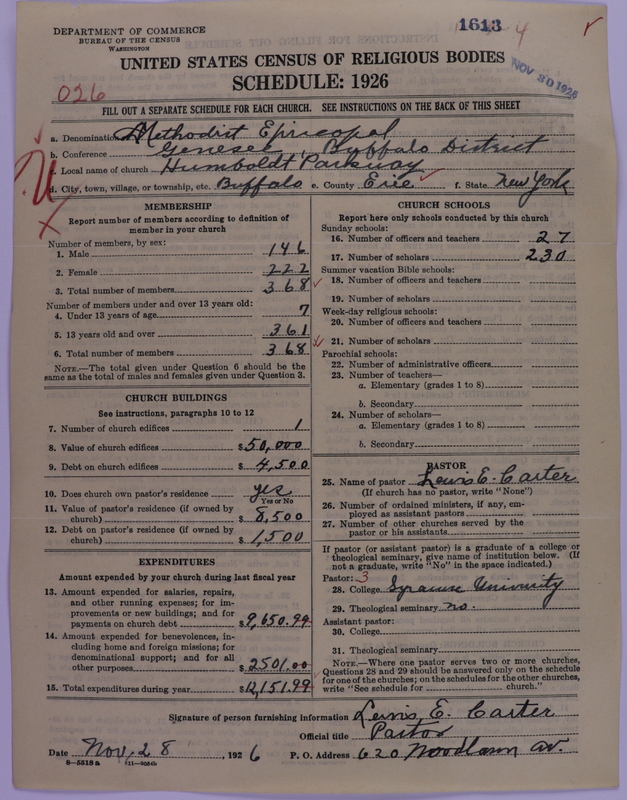 DEPARTMENT OF COMMERCE
BUREAU OF THE CENSUS
WASHINGTON
1613
4
NOV 30 1926
UNITED STATES CENSUS OF RELIGIOUS BODIES
SCHEDULE: 1926
026
FILL OUT A SEPARATE SCHEDULE FOR EACH CHURCH. SEE INSTRUCTIONS ON THE BACK OF THIS SHEET
a. Denomination Methodist Episcopal
b. Conference Genesee Buffalo District
c. Local name of church Humboldt Parkway
d. City, town, village, or township, etc. Buffalo e. County Erie f. State New York
MEMBERSHIP
Report number of members according to definition of
member in your church
Number of members, by sex:
1. Male 146
2. Female 222
3. Total number of members 368
Number of members under and over 13 years old:
4. Under 13 years of age 7
5. 13 years old and over 361
6. Total number of members 368
NOTE.—The total given under Question 6 should be
same as the total of males and females given under Question 3.
CHURCH BUILDINGS
See instructions, paragraphs 10 to 12
7. Number of church edifices 1
8. Value of church edifices $50,000
9. Debt on church edifices $ 4,500
10. Does church own pastor's residence yes
Yes or No
11. Value of pastor's residence (if owned by
church) $ 8,500
12. Debt on pastor's residence (if owned by
church) $ 1,500
EXPENDITURES
Amount expended by your church during last fiscal year
13. Amount expended for salaries, repairs,
and other running expenses; for im-
provements or new buildings; and for
payments on church debt $9,650.99
14. Amount expended for benevolences, in-
cluding home and foreign missions; for
denominational support; and for all
other purposes $2501.00
15. Total expenditures during year $12,151.99
CHURCH SCHOOLS
Report here only schools conducted by this church
Sunday schools:
16. Number of officers and teachers 27
17. Number of scholars 230
Summer vacation Bible schools:
18. Number of officers and teachers
19. Number of scholars
Week-day religious schools:
20. Number of officers and teachers
21. Number of scholars
Parochial schools:
22. Number of administrative officers
23. Number of teachers—
a. Elementary (grades 1 to 8)
b. Secondary
24. Number of scholars—
a. Elementary (grades 1 to 8)
b. Secondary
PASTOR
25. Name of pastor Lewis E. Carter
(If church has no pastor, write "None")
26. Number of ordained ministers, if any, em-
ployed as assistant pastors
27. Number of other churches served by the
pastor or his assistants
If pastor (or assistant pastor) is a graduate of a college or
theological seminary, give name of institution below. (If
not a graduate, write "No" in the space indicated.)
Pastor: 3
28. College Syracuse University
29. Theological seminary no.
Assistant pastor:
30. College
31. Theological seminary
NOTE.—Where one pastor serves two or more churches,
Questions 28 and 29 should be answered only on the schedule
for one of the churches; on the schedules for the other churches,
write "See schedule for church."
Signature of person furnishing information Lewis E. Carter
Official title Pastor
Date Nov. 28, 1926 P. O. Address 620 Woodlawn av.
8—5518a